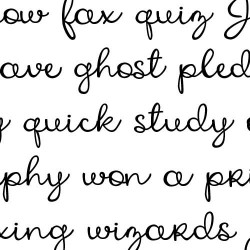 ow fox quiz J
ave ghost pled
quick study
phy won a pri
xing wizards